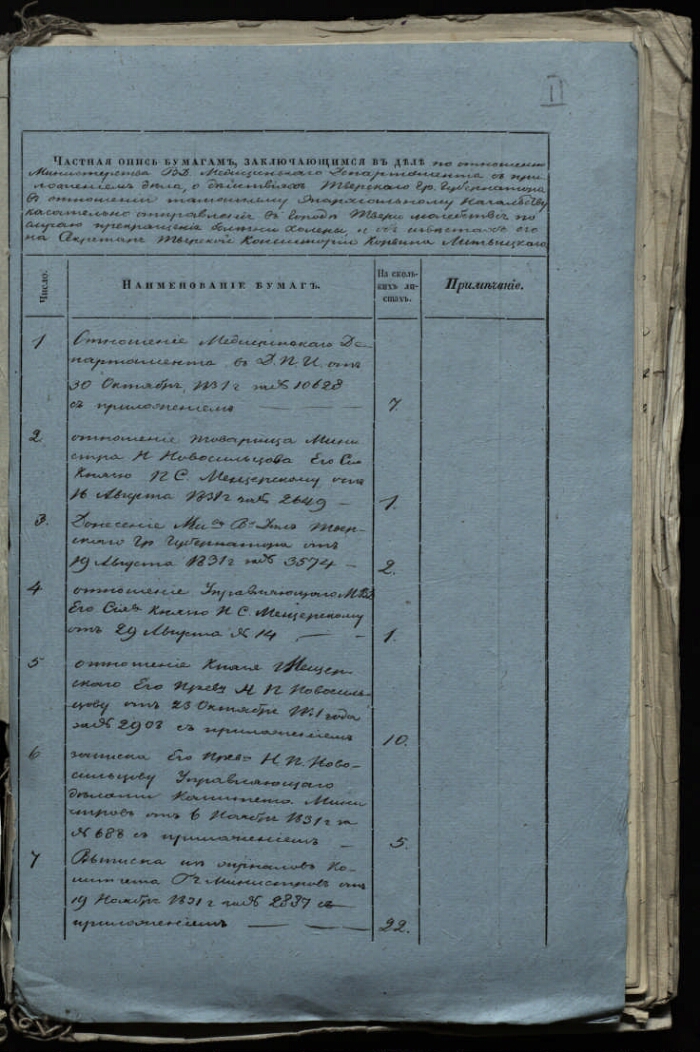 II
Частная опись бумагам, заключающимся въ дѣлѣ по отношенію
Министерства ВД Медицинскаго Департамента съ при
ложеніемъ дѣла, о дѣйствіяхъ Тверскаго Гр. Губернатора
въ отношеніи тамошнему Эпархіальному Начальству
касательно отправленія въ городѣ Твери молебствія по
случаю прекращенія болѣзни Холеры, и объ извѣтахъ его
на Секретаря Тверской Консисторіи Корвина Литвицкаго
Число.
Наименованіе бумагъ.
На сколь-
кихъ ли-
стахъ.
Примѣчаніе.
1
Отношеніе Медицинскаго Де-
партамента въ Д. П. И. отъ
30 Октября 1831 г за № 10628
съ приложеніемъ
7.
2.
отношеніе товарища Мини
стра Н Новосильцова Его Сія
Князю П С. Мещерскому отъ
16 Августа 1831 г за № 2649 –
1.
3.
Донесеніе Мин Вн Дѣлъ Твер-
скаго Гр Губернатора отъ
19 Августа 1831 г за № 3574 –
2.
4
отношеніе Управляющаго М.В.Д.
Его Сіяв Князю П С. Мещерскому
отъ 29 Августа № 14
1.
5
отношеніе Князя Мещер-
скаго Его Превв Н П Новосиль-
цову отъ 23 Октября 1831 года
за № 2903 съ приложеніемъ
10.
6
записка Его Прев Н. П. Ново-
сильцову Управляющаго
дѣлами Комитета Мини
стровъ отъ 6 Ноября 1831 г за
№ 688 съ приложеніемъ –
5.
7
Выписка из журналовъ Ко-
митета Гг Министровъ отъ
19 Ноября 1831 г за № 2837 съ
приложеніемъ
22.